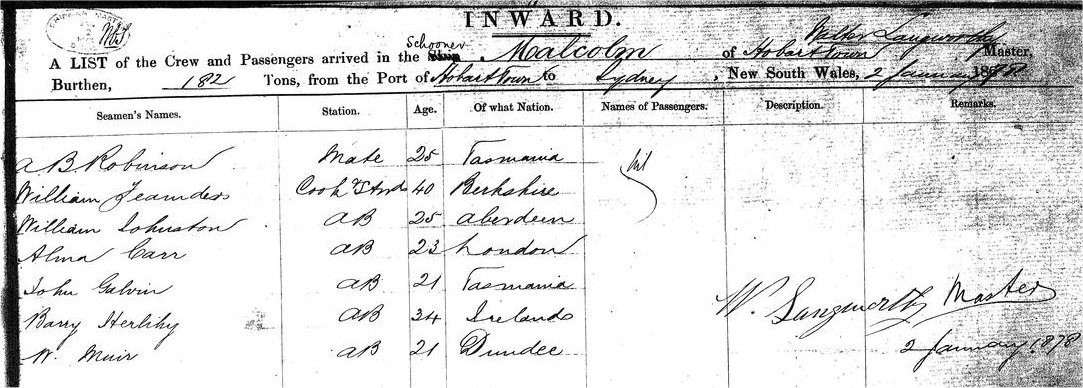 INWARD.
SHIPPING MASTER'S
A LIST of the Crew and Passengers arrived in the Schooner Malcolm of Hobart Town Walter Langworthy Master,
Burthen, 182 Tons, from the Port of Hobart Town to Sydney, New South Wales, 2 January 1878
Seamen's Names. Station. Age. Of what Nation. Names of Passengers. Description. Remarks.
A B Robinson Mate 25 Tasmania Nil
William Cook & Stwd 40 Berkshire
William Johnston AB 25 Aberdeen
Alma Carr AB 23 London
John Galvin AB 21 Tasmania
Barry Herlihy AB 34 Ireland W. Langworthy Master
W. Muir AB 21 Dundee 2 January 1878